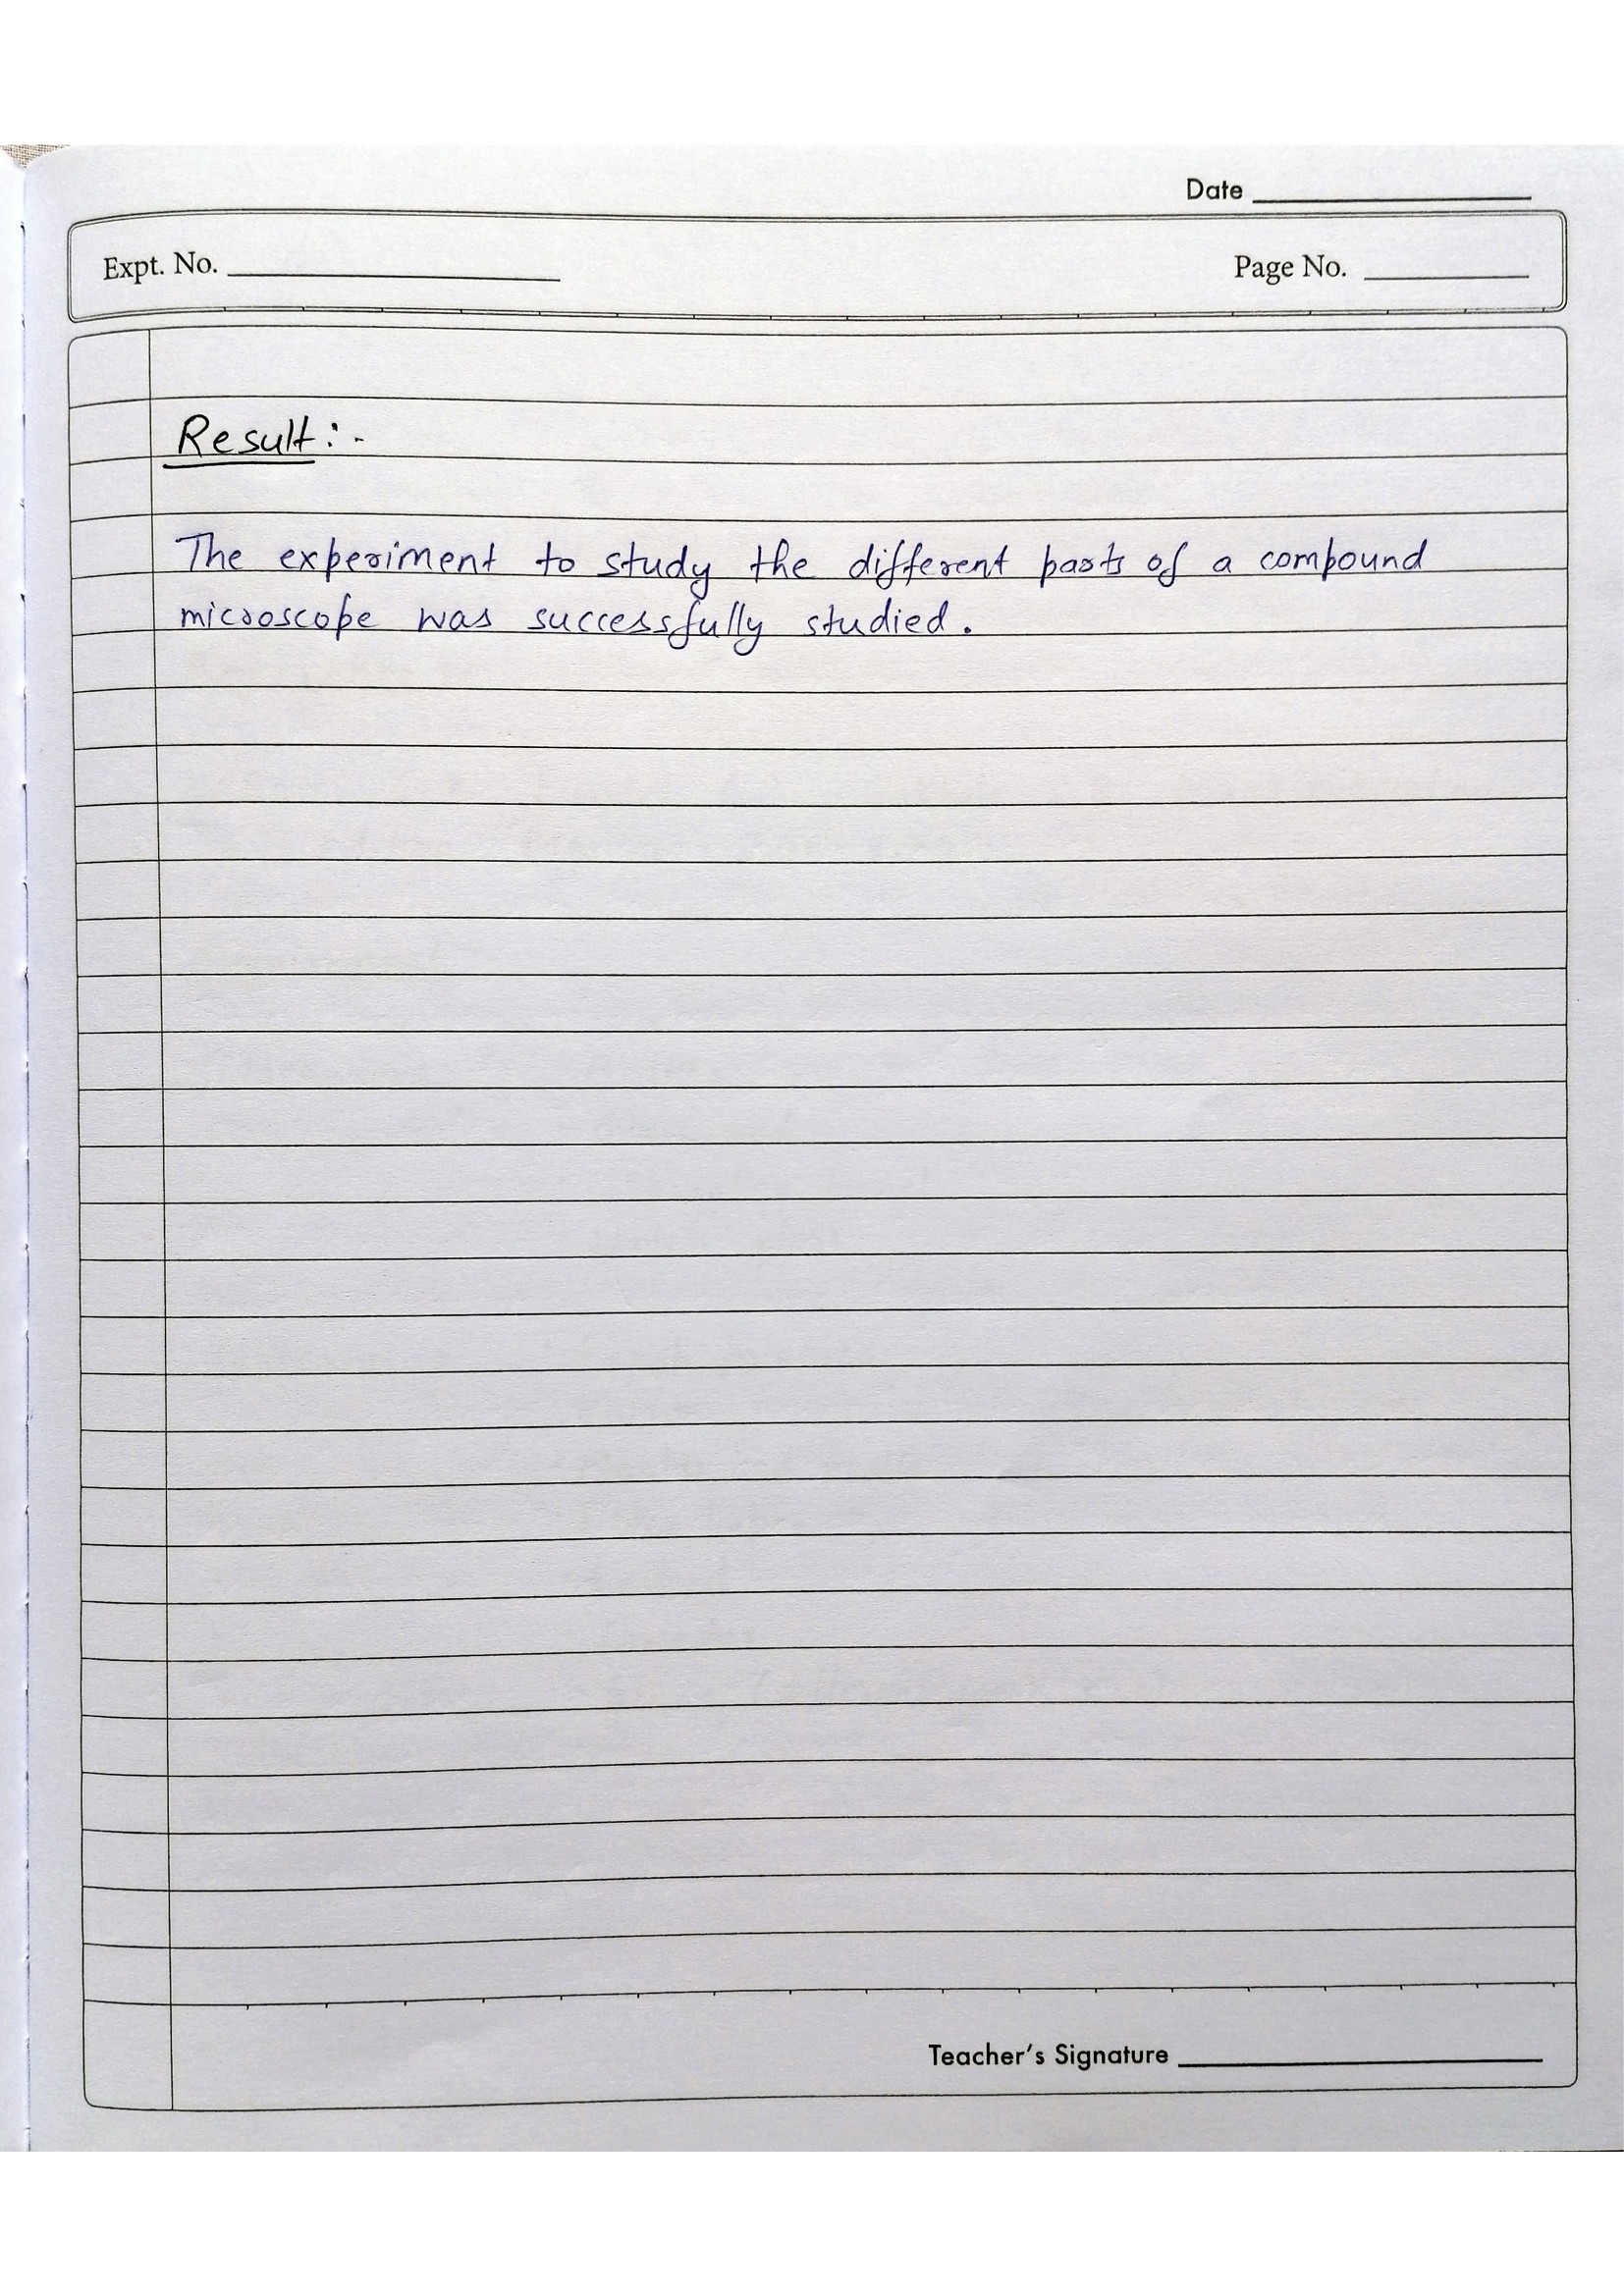 Date
Expt. No.
Page No.
Result:-
The experiment to study the different parts of a compound
microscope was successfully studied.
Teacher's Signature